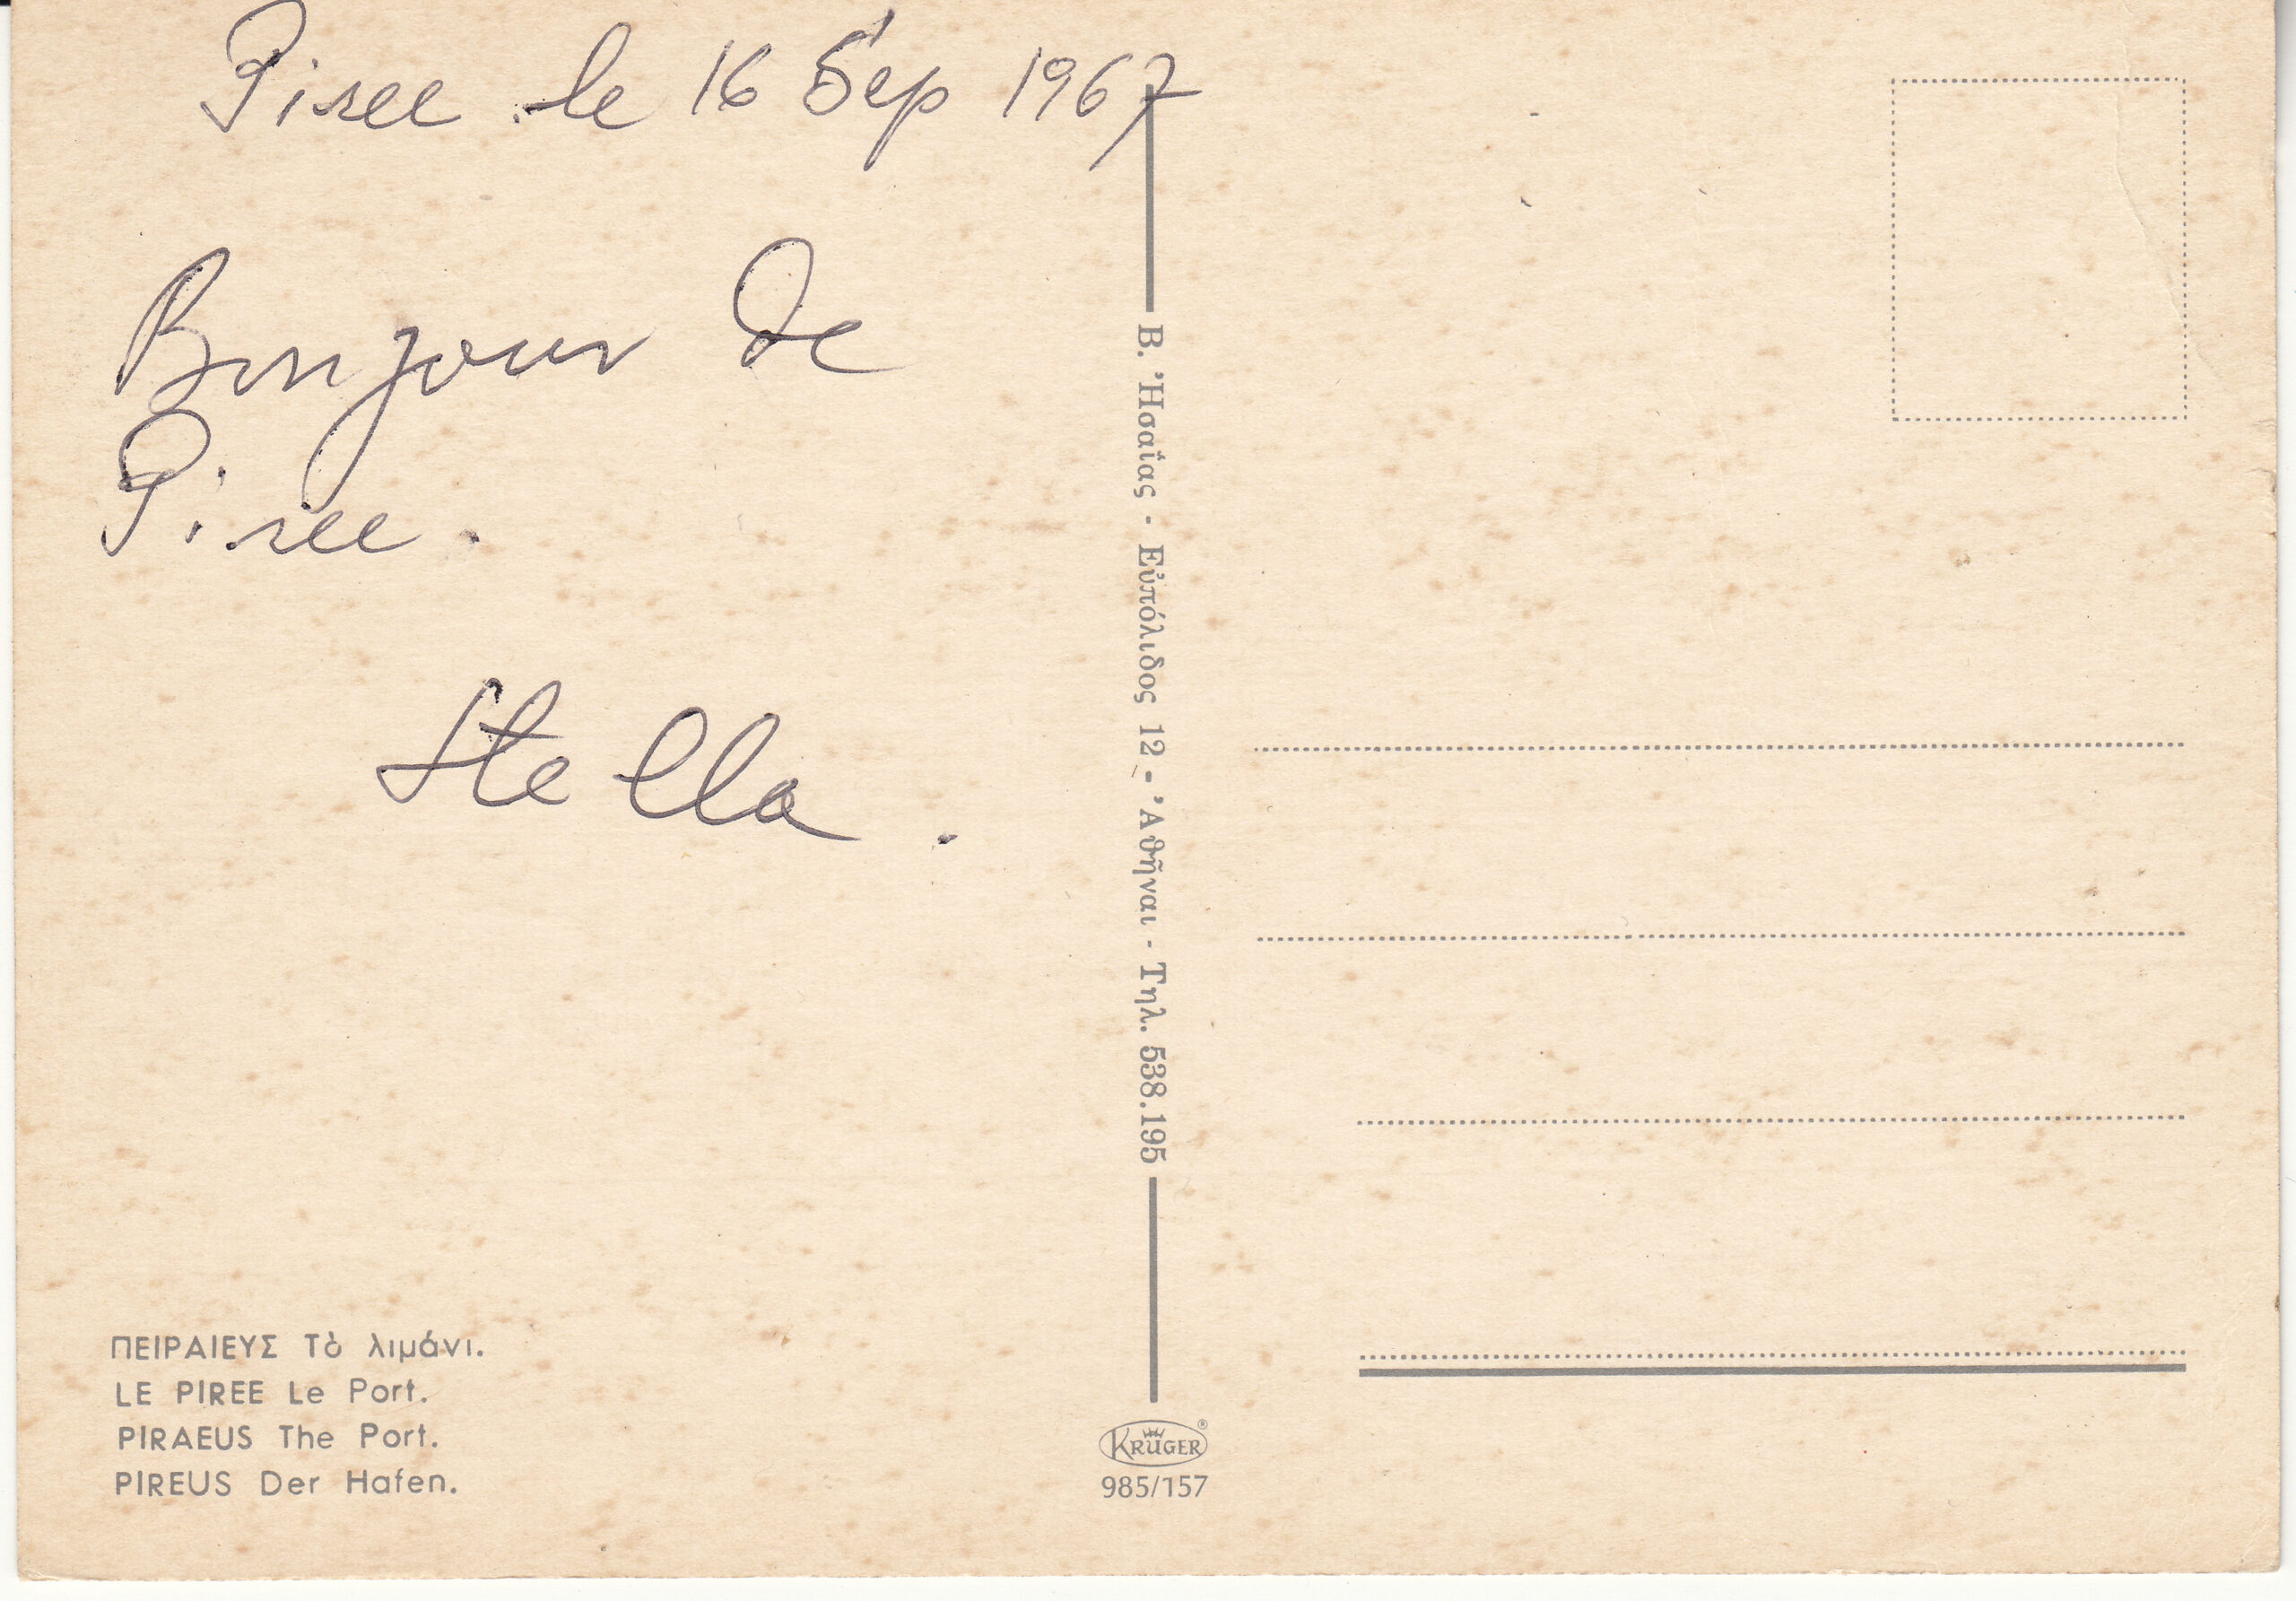 Piree le 16 Sep 1967
Bonjour de
Piree.
Stella.
Β. Ἠσαΐας - Εὐπόλιδος 12 - Ἀθῆναι - Τηλ. 538.195
ΠΕΙΡΑΙΕΥΣ Τὸ λιμάνι.
LE PIREE Le Port.
PIRAEUS The Port.
PIREUS Der Hafen.
KRÜGER®
985/157